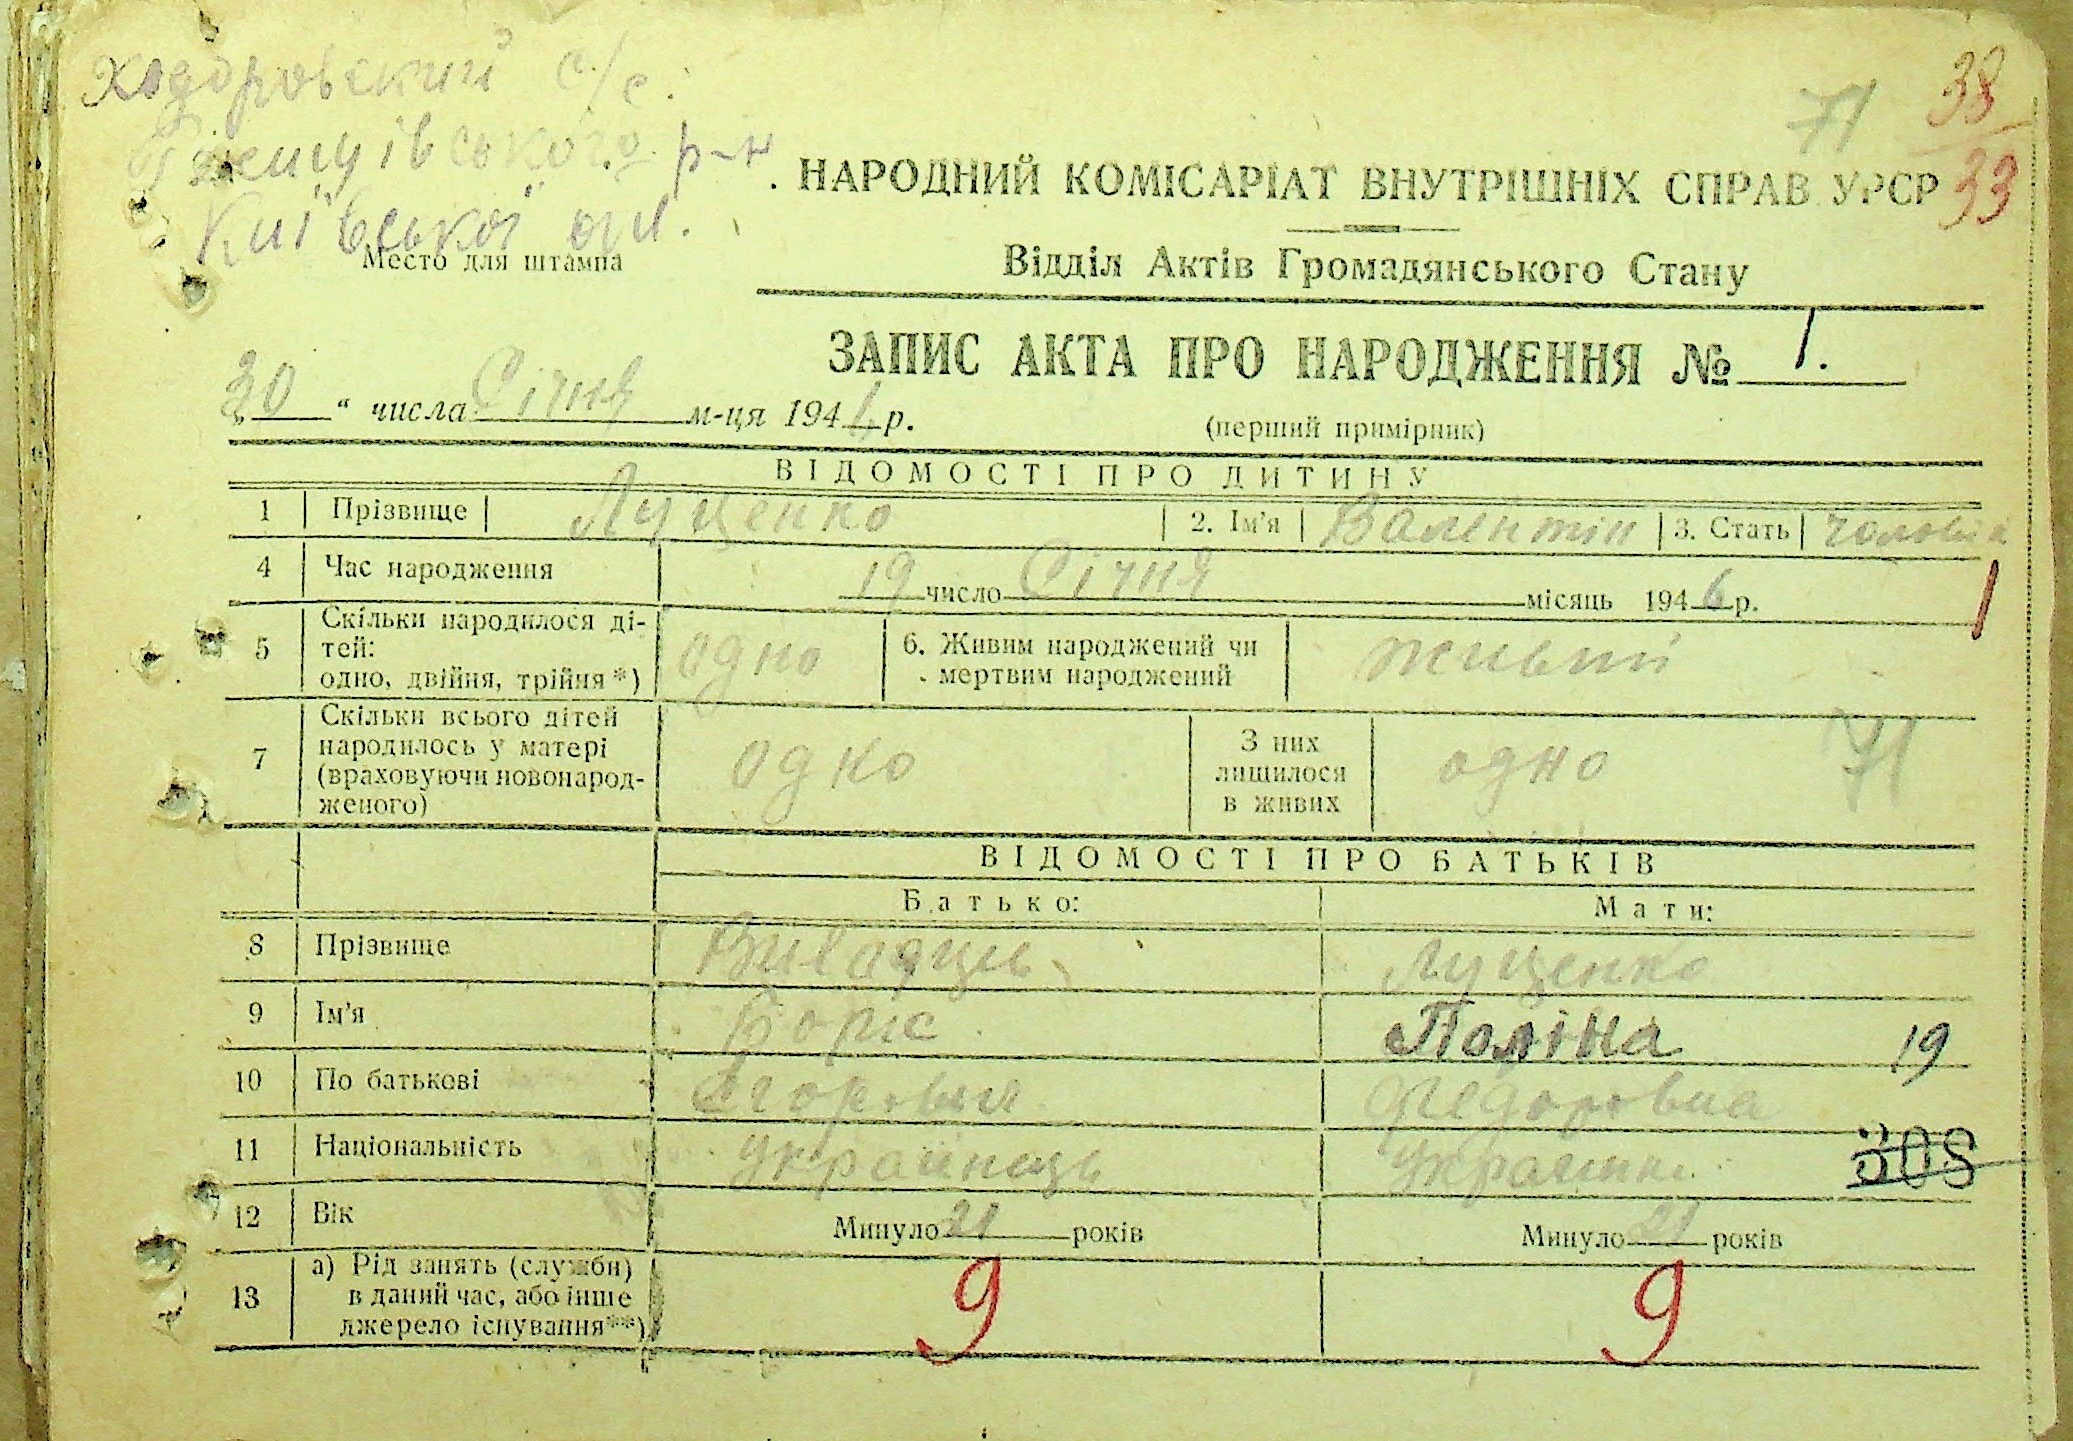 Ходоровский с/с.
р-н
Київської
71
38
33
НАРОДНИЙ КОМІСАРІАТ ВНУТРІШНІХ СПРАВ УРСР
Место для штампа
Відділ Актів Громадянського Стану
ЗАПИС АКТА ПРО НАРОДЖЕННЯ № 1.
„30“ числа Січня м-ця 194 р.
(перший примірник)
ВІДОМОСТІ ПРО ДИТИНУ
1 Прізвище Луценко 2. Ім'я Валентін 3. Стать
4 Час народження 19 число Січня місяць 1946 р.
1
5 Скільки народилося ді-
тей:
одно, двійня, трійня*) одно
6. Живим народжений чи
мертвим народжений
7 Скільки всього дітей
народилось у матері
(враховуючи новонарод-
женого) одно
З них
лищилося
в живих одно
71
ВІДОМОСТІ ПРО БАТЬКІВ
Батько: Мати:
8 Прізвище Луценко
9 Ім'я Боріс Поліна 19
10 По батькові Федоровна
11 Національність українець 308
12 Вік Минуло 21 років Минуло 21 років
13 а) Рід занять (служби)
в даний час, або інше
джерело існування**) 9 9